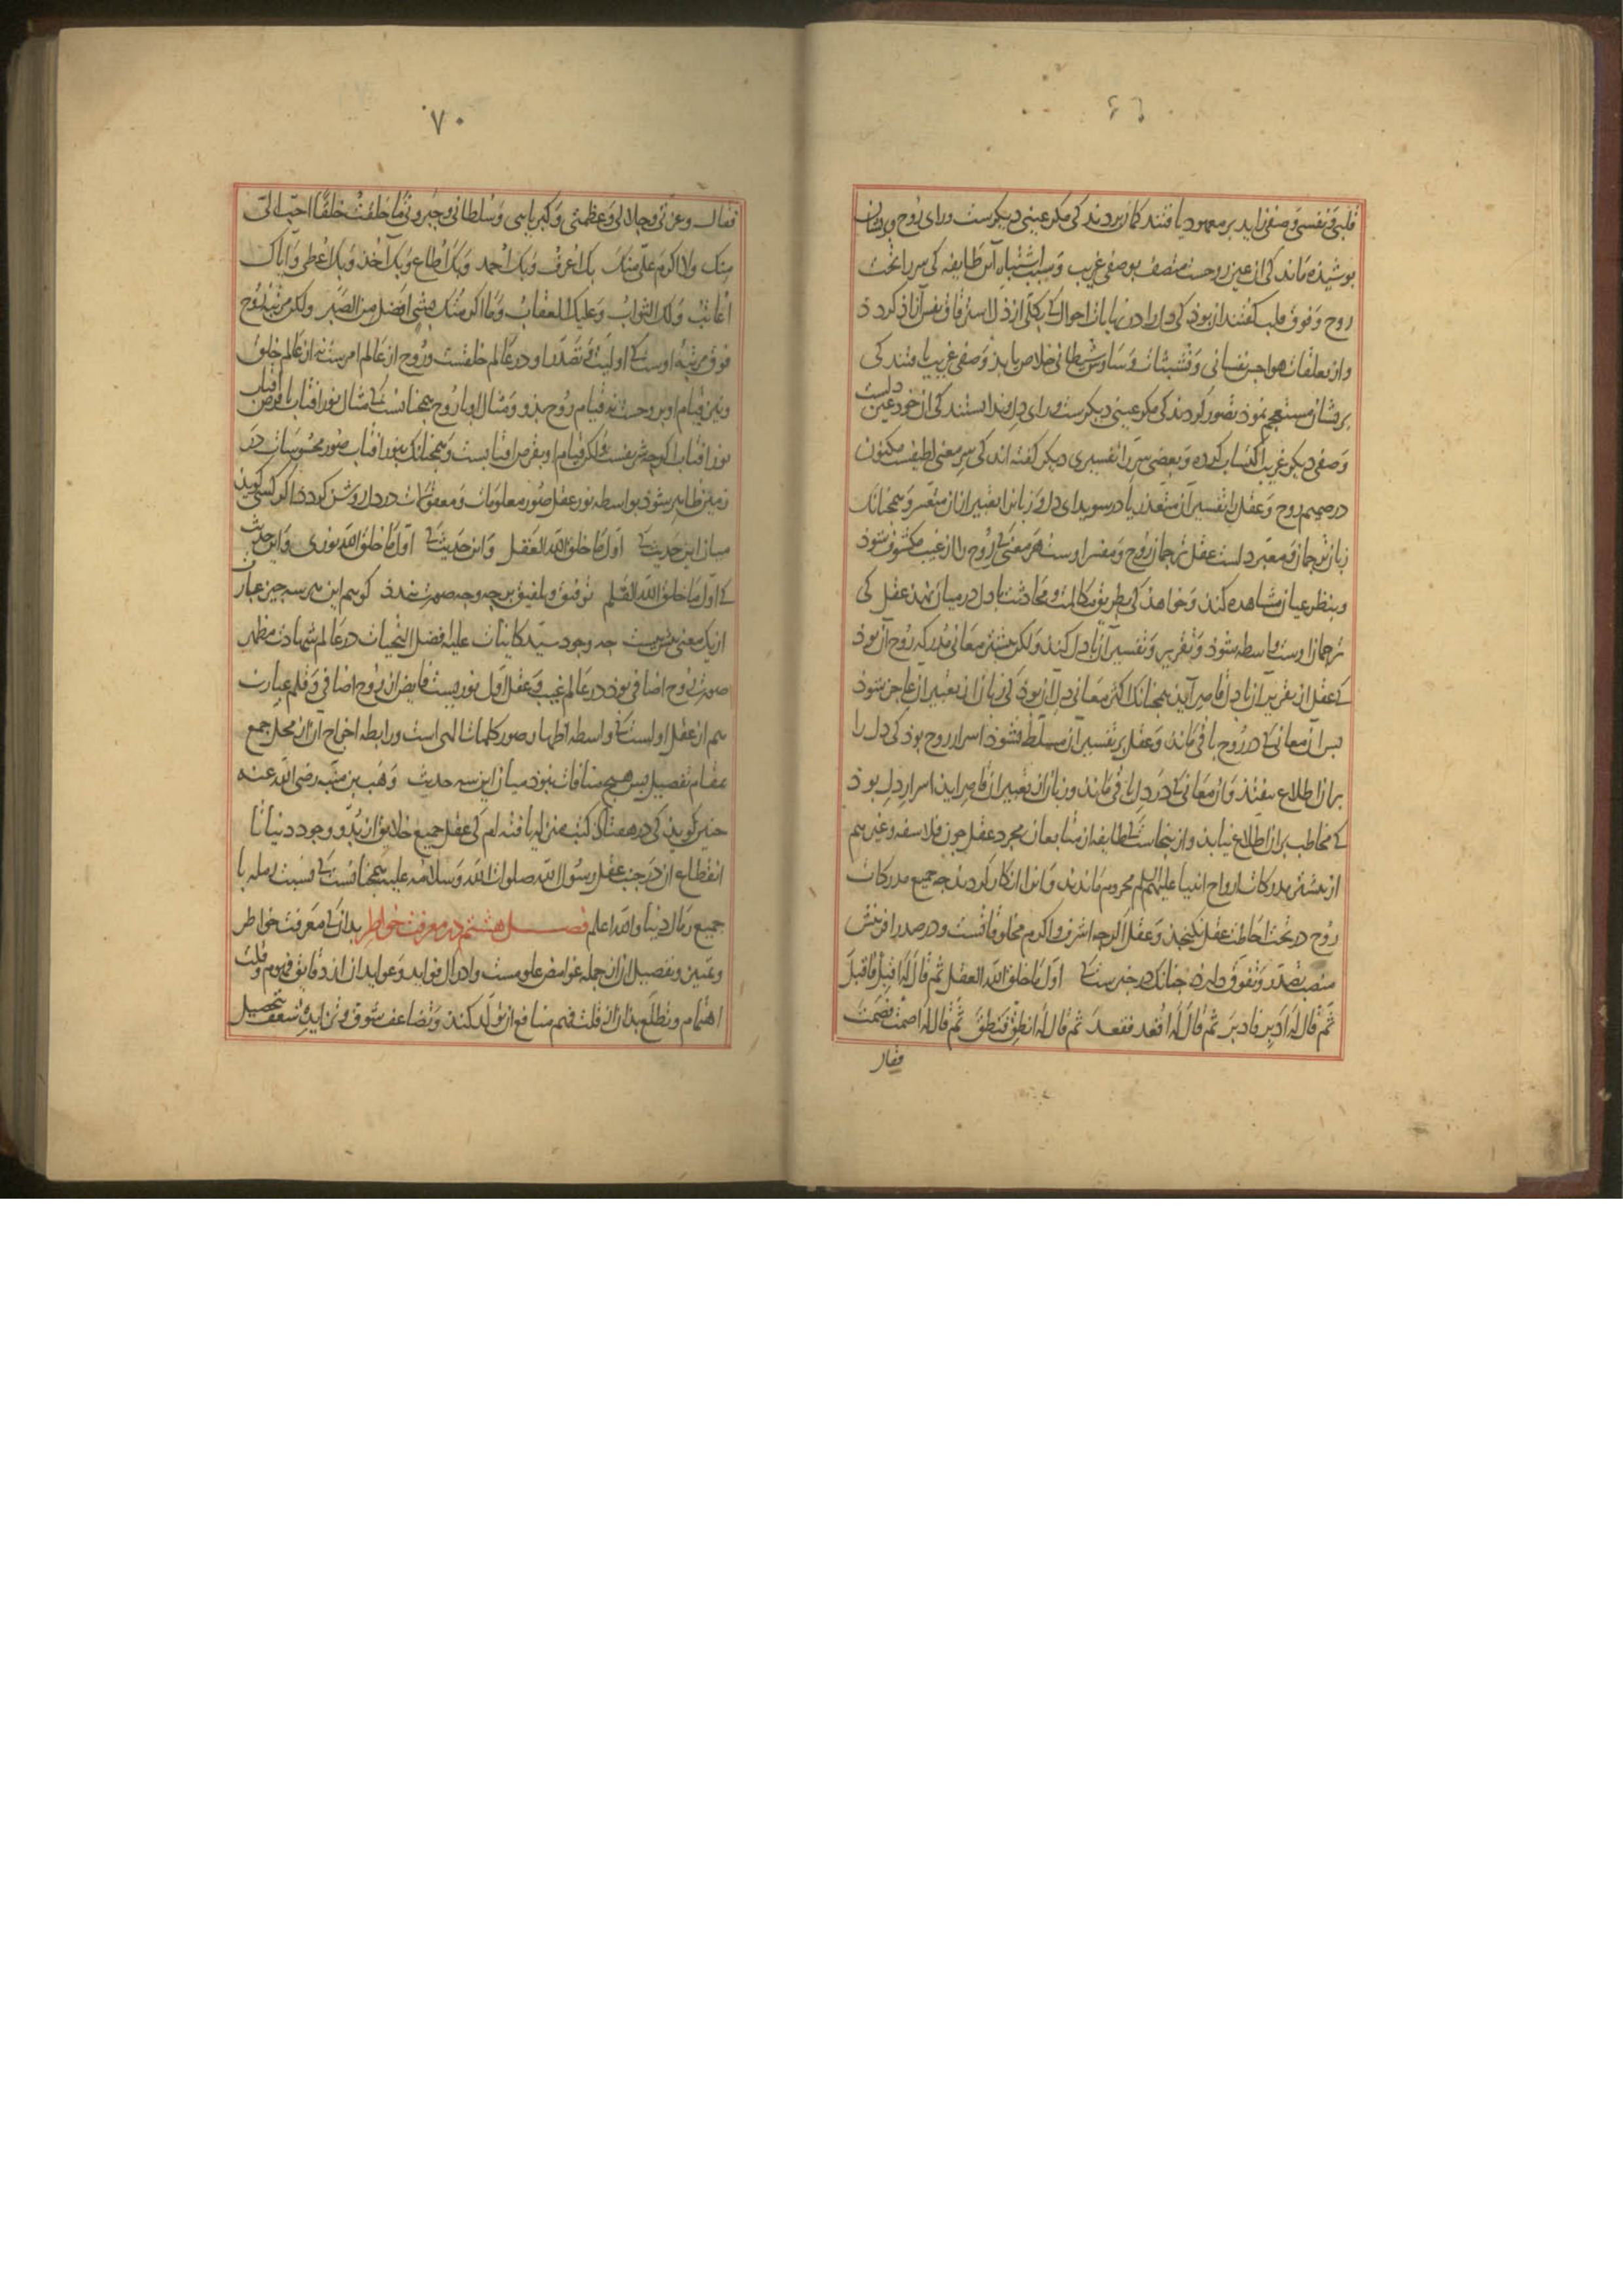 قلبی و نفسی وصفی زاید بر معهود یافتند کمان بردند کی مکر عینی دیکرست ورای روح و بریشان
بوشیده ماند کی ان عین روحست متصف بوصفی غریب و سبب اشتباه آن طایفه کی سر را تحت
روح و فوق قلب کفتند ازین بوذ کی دل را در نهایات احوال کی بکلی از ذل استرقاق نفس آزاذ کردذ
و از تعلقات هواجس نفسانی و تشبثات وساوس شیطانی خلاص یابذ وصفی غریب یافتند کی
بریشان مستعجم نموذ تصور کردند کی مکر عینی دیکرست ورای دل و ندانستند کی ان خود عین دلست
وصفی دیکر غریب اکتساب کرده و بعضی سر را تفسیری دیکر کفته اند کی سر معنی لطیفست مکنون
در صمیم روح و عقل را تفسیر آن متعذر یا در سویدای دل و زبان را تعبیر ازان متعسر و همچنانک
زبان ترجمان و معبر دلست عقل ترجمان روح و مفسر اوست هر معنی کی روح را از غیب مکشوف شوذ
و بنظر عیان مشاهده کنذ و خواهذ کی بطریق مکالمت و محادثت با دل در میان نهذ عقل کی
ترجمان اوست واسطه شوذ و تقریر و تفسیر آن با دل کند ولکن بیشتر معانی مدرکه روح آن بوذ
کی عقل از تقریر آن با دل قاصر آیذ همچنانک اکثر معانی دل آن بوذ کی زبان از تعبیر ان عاجز شوذ
بس آن معانی کی در روح باقی ماند و عقل بر تفسیر آن مسلط نشوذ اسرار روح بوذ کی دل را
بران اطلاع نیفتذ و ان معانی کی در دل باقی ماند و زبان از تعبیر ان قاصر ایذ اسرار دل بوذ
کی مخاطب بران اطلاع نیابذ و ازینجاست کی طایفه از متابعان مجرد عقل چون فلاسفه و غیرهم
از بیشتر مدرکات ارواح انبیا علیهم السلم محروم ماندند و ان را انکار کردند جه جمیع مدرکات
روح در تحت احاطت عقل نکنجذ و عقل اکرجه اشرف و اکرم مخلوقاتست و در صدر افرینش
منصب تصدر و تفوق دارد چنانک در خبرست کی اول ما خلق الله العقل ثم قال له اقبل فاقبل
ثم قال له ادبر فادبر ثم قال له اقعد فقعد ثم قال له انطق فنطق ثم قال له اصمت فصمت
فقال
٧٠
فقال وعزتی وجلالی وعظمتی وکبریایی وسلطانی وجبروتی ما خلقت خلقا احب الی
منک ولا اکرم علی منک بک اعرف وبک احمد وبک اطاع وبک آخذ وبک اعطی وایاک
اعاتب ولک الثواب وعلیک العقاب وما اکرمتک بشی افضل من الصبر ولکن مرتبه روح
فوق مرتبه اوست کی اولیت و تصدر او در عالم خلقست و روح از عالم امرست نه از عالم خلق
و نیز قیام او بروحست نه قیام روح بذو و مثال او با روح همچنانست کی مثال نور افتاب با قرص افتاب
نور افتاب اکرچه شریفست ولکن قیام او بقرص افتابست و همچنانک بنور افتاب صور محسوسات در
زمین ظاهر شوذ بواسطه نور عقل صور معلومات و معقولات در دل روشن کردذ اکر کسی کویذ
میان این حدیث کی اول ما خلق الله العقل و این حدیث کی اول ما خلق الله نوری و این حدیث
کی اول ما خلق الله القلم توفیق و تلفیق برچه وجه صورت بندذ کوییم این هر سه چیز عبارت
از یک معنی بیش نیست جه وجود سید کاینات علیه افضل التحیات در عالم شهادت مظهر
صورت روح اضافی بوذ در عالم غیب و عقل اول نوریست فایض از روح اضافی و قلم عبارت
هم از عقل اولست کی واسطه اظهار صور کلمات الهی است و رابطه اخراج ان از محل جمع
بمقام تفصیل پس هیچ منافات نبوذ میان این سه حدیث وهب بن منبه رضی الله عنه
چنین کویذ کی در هفتاذ کتب منزله یافته ام کی عقل جمیع خلایق از بدو وجود دنیا تا
انقطاع ان در جنب عقل رسول الله صلوات الله وسلامه علیه همچنانست کی نسبت رمله با
جمیع رمال دنیا والله اعلم فصل هشتم در معرفت خواطر بدانک معرفت خواطر
و تمییز و تفصیل ان از جمله غوامض علومست و ادراک فواید و عواید ان از دقایق فهوم و قلت
اهتمام و تطلع بذان از قلت فهم منافع ان تولد کنذ و تضاعف شوق و تزاید شعف بتحصیل